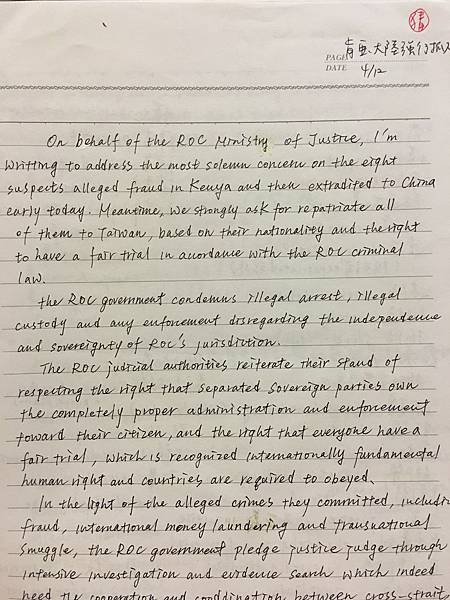 肯亞大陸強行
PAGE
DATE 4/12
On behalf of the ROC Ministry of Justice, I'm
writting to address the most solemn concern on the eight
suspects alleged fraud in Kenya and then extradited to China
early today. Meantime, we strongly ask for repatriate all
of them to Taiwan, based on their nationality and the right
to have a fair trial in acordance with the ROC criminal
law.
The ROC government condemns illegal arrest, illegal
custody and any enforcement disregarding the independence
and sovereignty of ROC's jurisdiction.
The ROC judicial authorities reiterate their stand of
respecting the right that separated sovereign parties own
the completely proper administration and enforcement
toward their citizen, and the right that everyone have a
fair trial, which is recognized internationally fundamental
human right and countries are required to obeyed.
In the light of the alleged crimes they committed, includin
fraud, international money laundering and transnational
smuggle, the ROC government pledge justice judge through
intensive investigation and evidence search which indeed
need the cooperation and cooddination between cross-strait